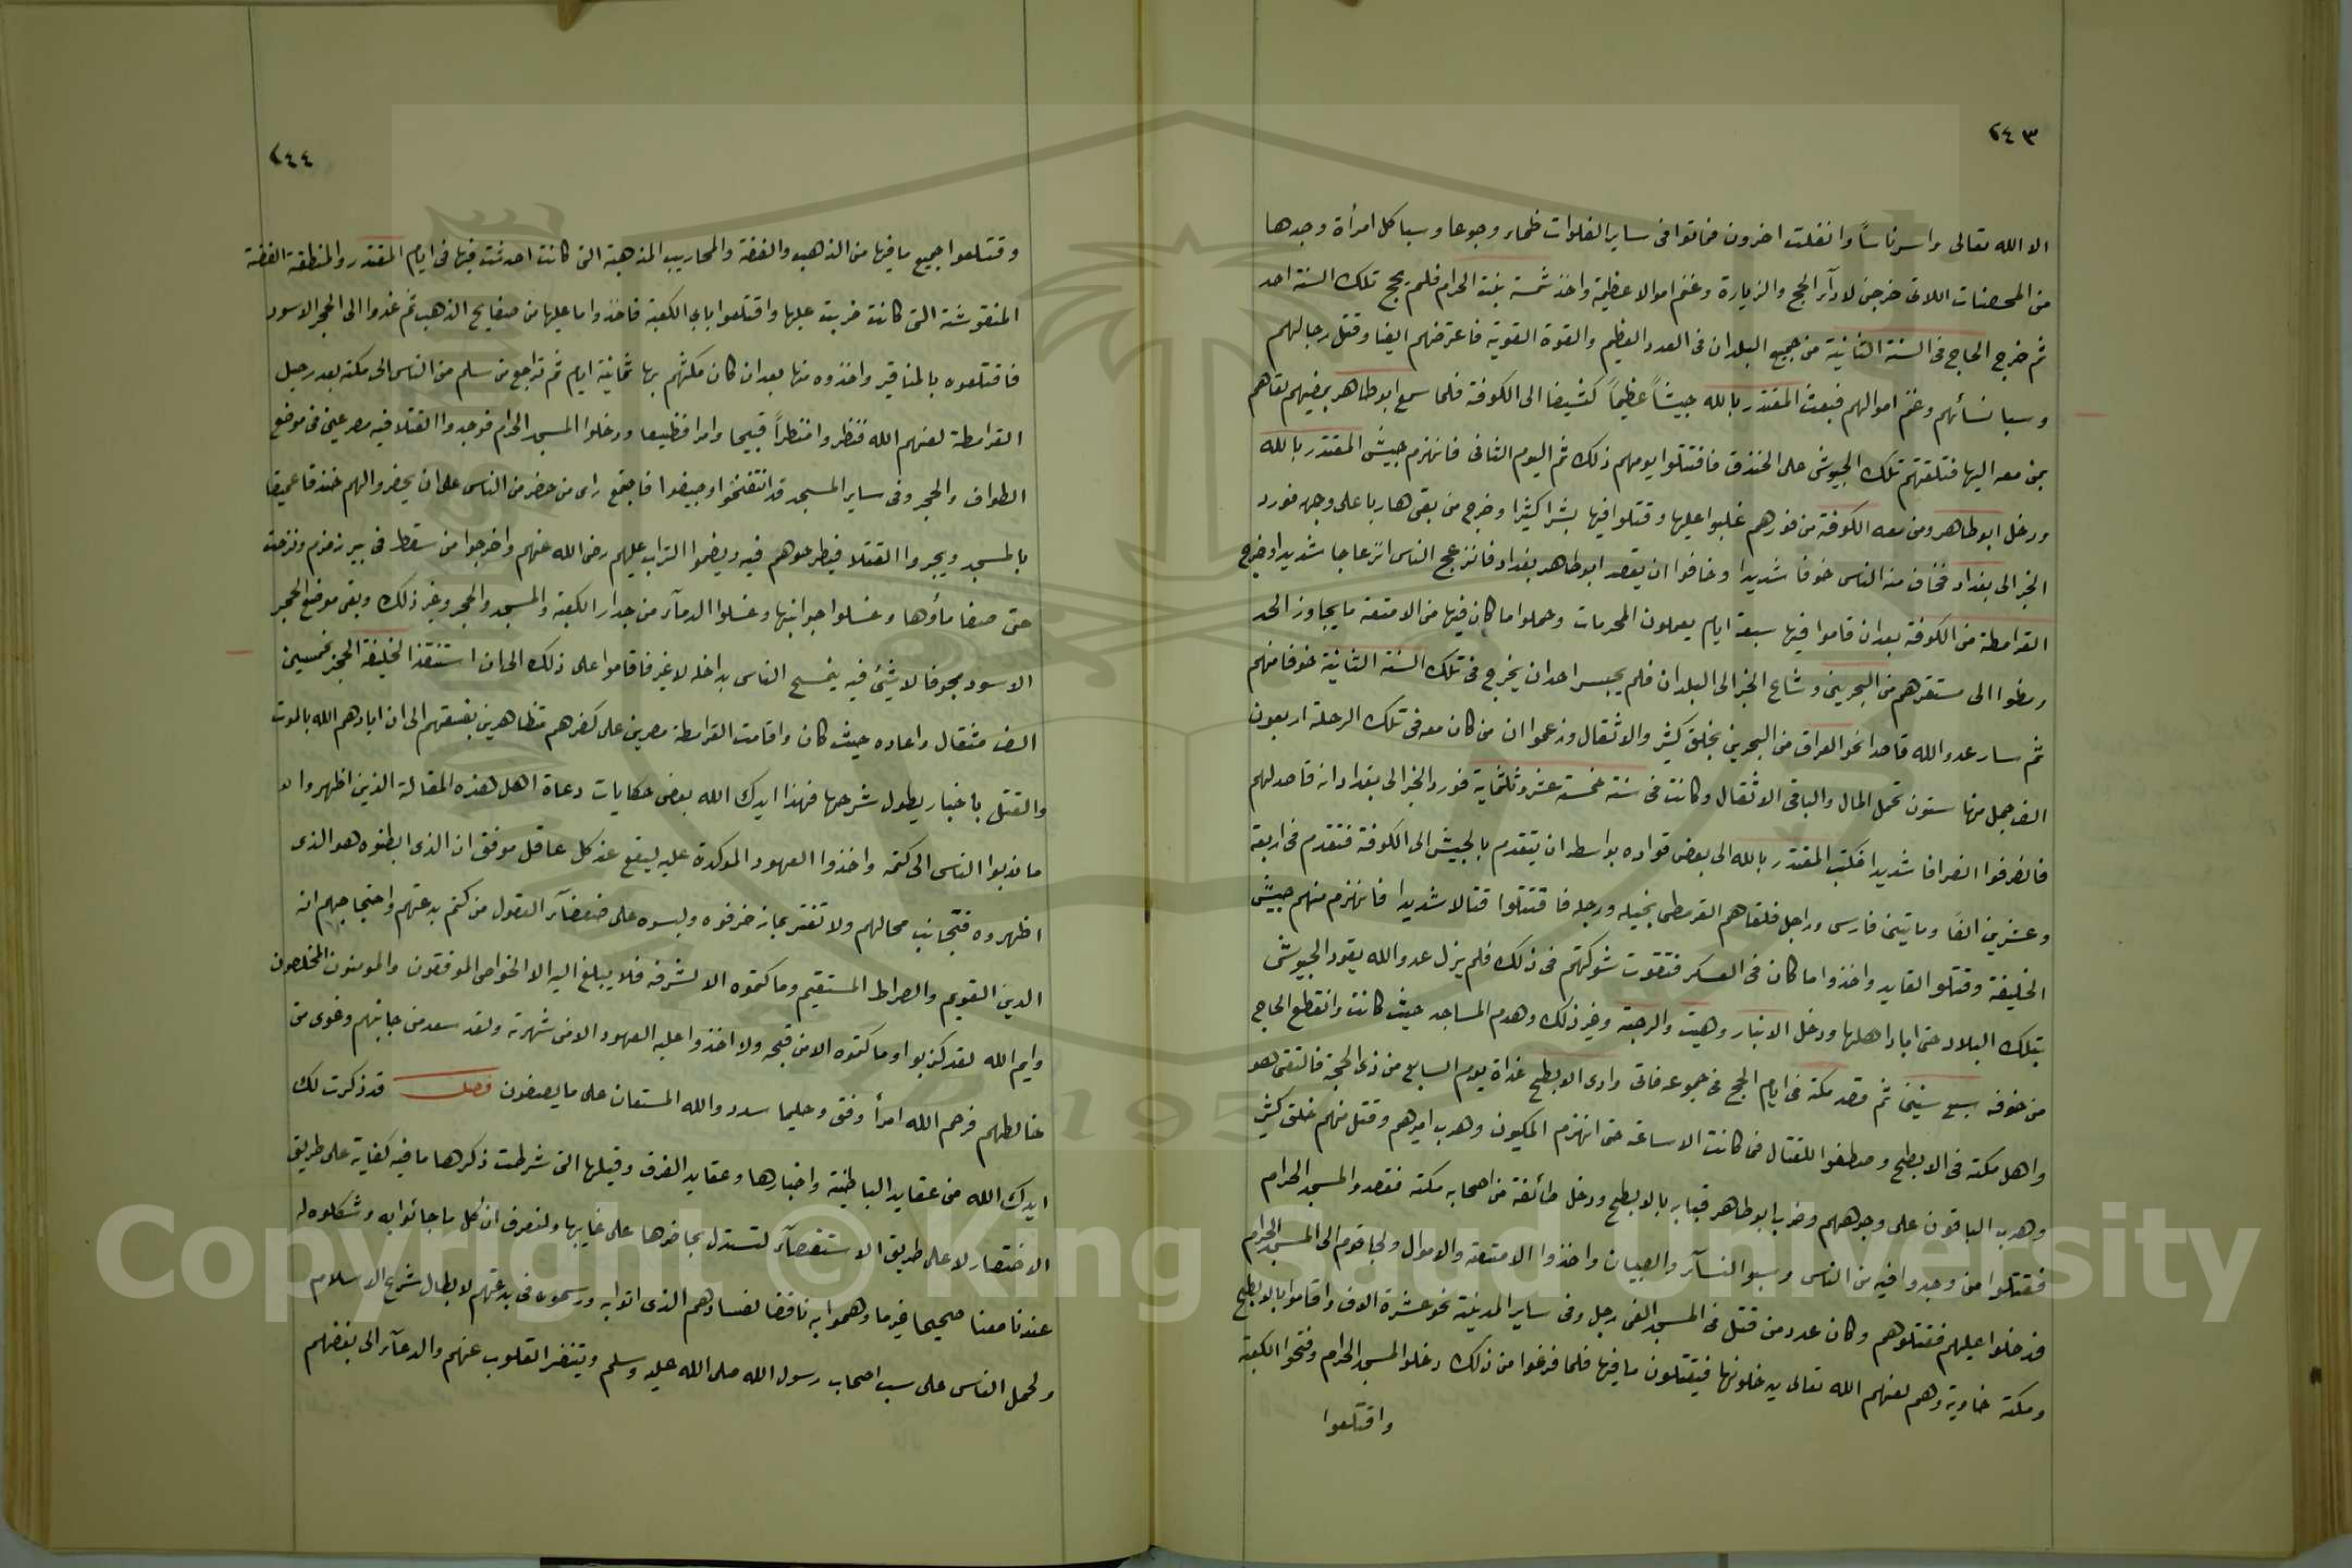 ٢٤٣
الا الله تعالى واسر ناساً وانفلت اخرون فماتوا فى ساير الفلوات ظماء وجوعا وسبا كل امرأة وجدها
من المحصنات اللاتى خرجن لادآء الحج والزيارة وغنم اموالا عظيمة واخذ شمسة بيت الحرام فلم يحج تلك السنة احد
ثم خرج الحاج فى السنة الثانية من جميع البلدان فى العدد العظيم والقوة القوية فاعترضهم ايضا وقتل رجالهم
وسبا نسائهم وغنم اموالهم فبعث المقتدر بالله جيشاً عظيماً كثيفا الى الكوفة فلما سمع ابو طاهر بمضيهم لقاهم
بمن معه اليها فتلقتهم تلك الجيوش على الخندق فاقتتلوا يومهم ذلك ثم اليوم الثانى فانهزم جيش المقتدر بالله
ودخل ابو طاهر ومن معه الكوفة من فورهم غلبوا عليها وقتلوا فيها بشرا كثيرا وخرج من بقى هاربا على وجهه فورد
الخبر الى بغداد فخاف منه الناس خوفا شديدا وخافوا ان يقصد ابو طاهر بغداد فانزعج الناس انزعاجا شديدا وخرج
القرامطة من الكوفة بعد ان قاموا فيها سبعة ايام يعملون المحرمات وحملوا ما كان فيها من الامتعة ما يجاوز الحد
ومضوا الى مستقرهم من البحرين وشاع الخبر الى البلدان فلم يجسر احد ان يخرج فى تلك السنة الثانية خوفا منهم
ثم سار عدو الله قاصدا نحو العراق من البحرين بخلق كثير والاثقال وزعموا ان من كان معه فى تلك الرحلة اربعون
الف جمل منها ستون تحمل المال والباقى الاثقال وكانت فى سنة خمسة عشر وثلثماية فورد الخبر الى بغداد انه قاصد لهم
فانصرفوا انصرافا شديدا فكتب المقتدر بالله الى بعض قواده بواسط ان يتقدم بالجيش الى الكوفة فتقدم فى اربعة
وعشرين الفاً ومايتين فارس وراجل فلقاهم القرمطى بخيله ورجله فاقتتلوا قتالا شديدا فانهزم منهم جيش
الخليفة وقتلو القايد واخذوا ما كان فى العسكر فتقوت شوكتهم فى ذلك فلم يزل عدو الله يقود الجيوش
بتلك البلاد حتى اباد اهلها ودخل الانبار وهيت والرحبة وغير ذلك وهدم المساجد حيث كانت وانقطع الحاج
من خوفه سبع سنين ثم قصد مكة فى ايام الحج فى جموعه فاتى وادى الابطح غداة يوم السابع من ذى الحجة فالتقى هو
واهل مكة فى الابطح وصطفوا للقتال فما كانت الا ساعة حتى انهزم المكيون وهرب اميرهم وقتل منهم خلق كثير
وهرب الباقون على وجوههم وضرب ابو طاهر قبابه بالابطح ودخل طائفة من اصحابه مكة فقصدوا المسجد الحرام
فقتلوا من وجدوا فيه من الناس وسبو النسآء والصبيان واخذوا الامتعة والاموال ولجا قوم الى المسجد الحرام
فدخلوا عليهم فقتلوهم وكان عدد من قتل فى المسجد الفى رجل وفى ساير المدينة نحو عشرة الاف واقاموا بالابطح
ومكة خاوية وهم لعنهم الله تعالى يدخلونها فيقتلون ما فيها فلما فرغوا من ذلك دخلوا المسجد الحرام وفتحوا الكعبة
واقتلعوا
٢٤٤
وقتلعوا جميع ما فيها من الذهب والفضة والمحاريب المذهبة التى كانت احدثت فيها فى ايام المقتدر والمنطقة الفضة
المنقوشة التى كانت ضربت عليها واقتلعوا باب الكعبة فاخذوا ما عليها من صفايح الذهب ثم غدوا الى الحجر الاسود
فاقتلعوه بالمناقير واخذوه منها بعد ان كان مكثهم بها ثمانية ايام ثم تراجع من سلم من الناس الى مكة بعد رحيل
القرامطة لعنهم الله فنظروا منظراً قبيحا وامرا فظيعا ودخلوا المسجد الحرام فوجدوا القتلا فيه مصرعين فى موضع
الطواف والحجر وفى ساير المسجد قد انتفخوا وجيفوا فاجتمع راى من حضر من الناس على ان يحفروا لهم خندقا عميقا
بالمسجد ويجروا القتلا فيطرحوهم فيه ويضموا التراب عليهم رضى الله عنهم واخرجوا من سقط فى بير زمزم ونزحت
حتى صفا ماؤها وغسلوا جوانبها وغسلوا الدمآء من جدار الكعبة والمسجد والحجر وغير ذلك وبقى موضع الحجر
الاسود مجوفا لا شئ فيه يتمسح الناس بداخله لا غير فاقاموا على ذلك الى ان استنقذ الخليفة الحجر بخمسين
الف مثقال واعاده حيث كان واقامت القرامطة مصرين على كفرهم متظاهرين بفسقهم الى ان ابادهم الله بالموت
والقتل باخبار يطول شرحها فهذا ايدك الله بعض حكايات دعاة اهل هذه المقالة الذين اظهروا لا
ما ندبوا الناس الى كتمه واخذوا العهود الموكدة عليه ليقع عند كل عاقل موفق ان الذى ابطنوه هو الذى
اظهروه فتجانب محالهم ولا تغتر بما زخرفوه ولبسوه على ضعفآء العقول من كتم بدعتهم واحتجاجهم انه
الدين القويم والصراط المستقيم وما كتموه الا لشرفه فلا يبلغ اليه الا الخواص الموفقون والمومنون المخلصون
وايم الله لقد كذبوا وما كتموه الا من قبحه ولا اخذوا عليه العهود الا من شهرته ولقد سعد من جانبهم وغوى من
خالطهم فرحم الله امرأ وفق وحليما سدد والله المستعان على ما يصفون فصل قد ذكرت لك
ايدك الله من عقايد الباطنية واخبارها وعقايد الفرق وقيلها التى شرطت ذكرها ما فيه كفاية على طريق
الاختصار لا على طريق الاستقصآء لتستدل بحاضرها على غايبها ولتعرف ان كل ما جائوا به وشكلوه له
عندنا معنا صحيحا غير ما وهموا به ناقضا لفسادهم الذى اتوا به ورسموه فى بدعتهم لابطال شرع الاسلام
ولحمل الناس على سب اصحاب رسول الله صلى الله عليه وسلم وتنفر القلوب عنهم والدعآء الى بغضهم
Copyright © King Saud University
1957